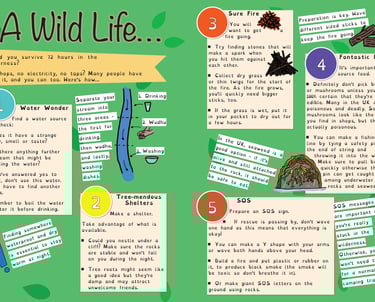 A Wild Life...
d you survive 12 hours in the
erness?
hops, no electricity, no taps? Many people have
it, and you can too. Here's how...
1
Water Wonder
Find a water source
check:
es it have a strange
r, smell or taste?
there anything farther
ream that might be
ing the water?
've answered yes to
, don't use this water.
have to find another
e.
mber to boil the water
er it before drinking.
Separate your
stream into
three areas -
the first for
drinking,
then wudhu,
and lastly,
washing
dishes.
1. Drinking
2. Wudhu
3. Washing
finding somewhere
waterproof and dry
is essential to stay
warm at night.
2
Tree-mendous
Shelters
Make a shelter.
Take advantage of what is
available.
Could you nestle under a
cliff? Make sure the rocks
are stable and won't fall
on you during the night.
Tree roots might seem like
a good idea but they're
damp and may attract
unwelcome friends.
3
Sure Fire
You will want to
get fire going.
Try finding stones that will
make a spark when
you hit them against
each other.
Collect dry grass
or thin twigs for the start
of the fire. As the fire grows,
you'll quickly need bigger
sticks, too.
If the grass is wet, put it
in your pocket to dry out for
a few hours.
Preparation is key. Have
different sized sticks to
keep the fire going.
4
Fantastic F
It's important
source of food.
Definitely don't pick b
or mushrooms unless you
100% certain that they're
edible. Many in the UK a
poisonous and deadly. So
mushrooms look like the o
you find in shops, but the
actually poisonous.
You can make a fishin
line by tying a safety pi
the end of string and
throwing it into the w
Make sure to pull bac
quickly otherwise th
pin can get caught
among underwater
rocks and seaweed
In the UK, seaweed is a
good option - if it's
alive and still attached
to the rock, it should
be safe to eat.
5
SOS
Prepare an SOS sign.
If rescue is passing by, don't wave
one hand as this means that everything is
okay!
You can make a Y shape with your arms
or wave both hands above your head.
Build a fire and put plastic or rubber on
it, to produce black smoke (the smoke will
be toxic so don't breathe it in).
Or make giant SOS letters on the
ground using rocks.
SOS messages
are important
you're really
stuck in the
wilderness.
Otherwise, you
won't need to
for a normal
camping trip